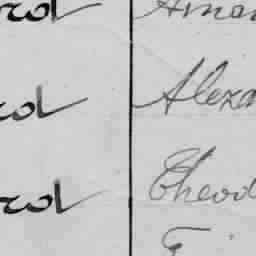 rol Aman
rol Alexa
rol Theod